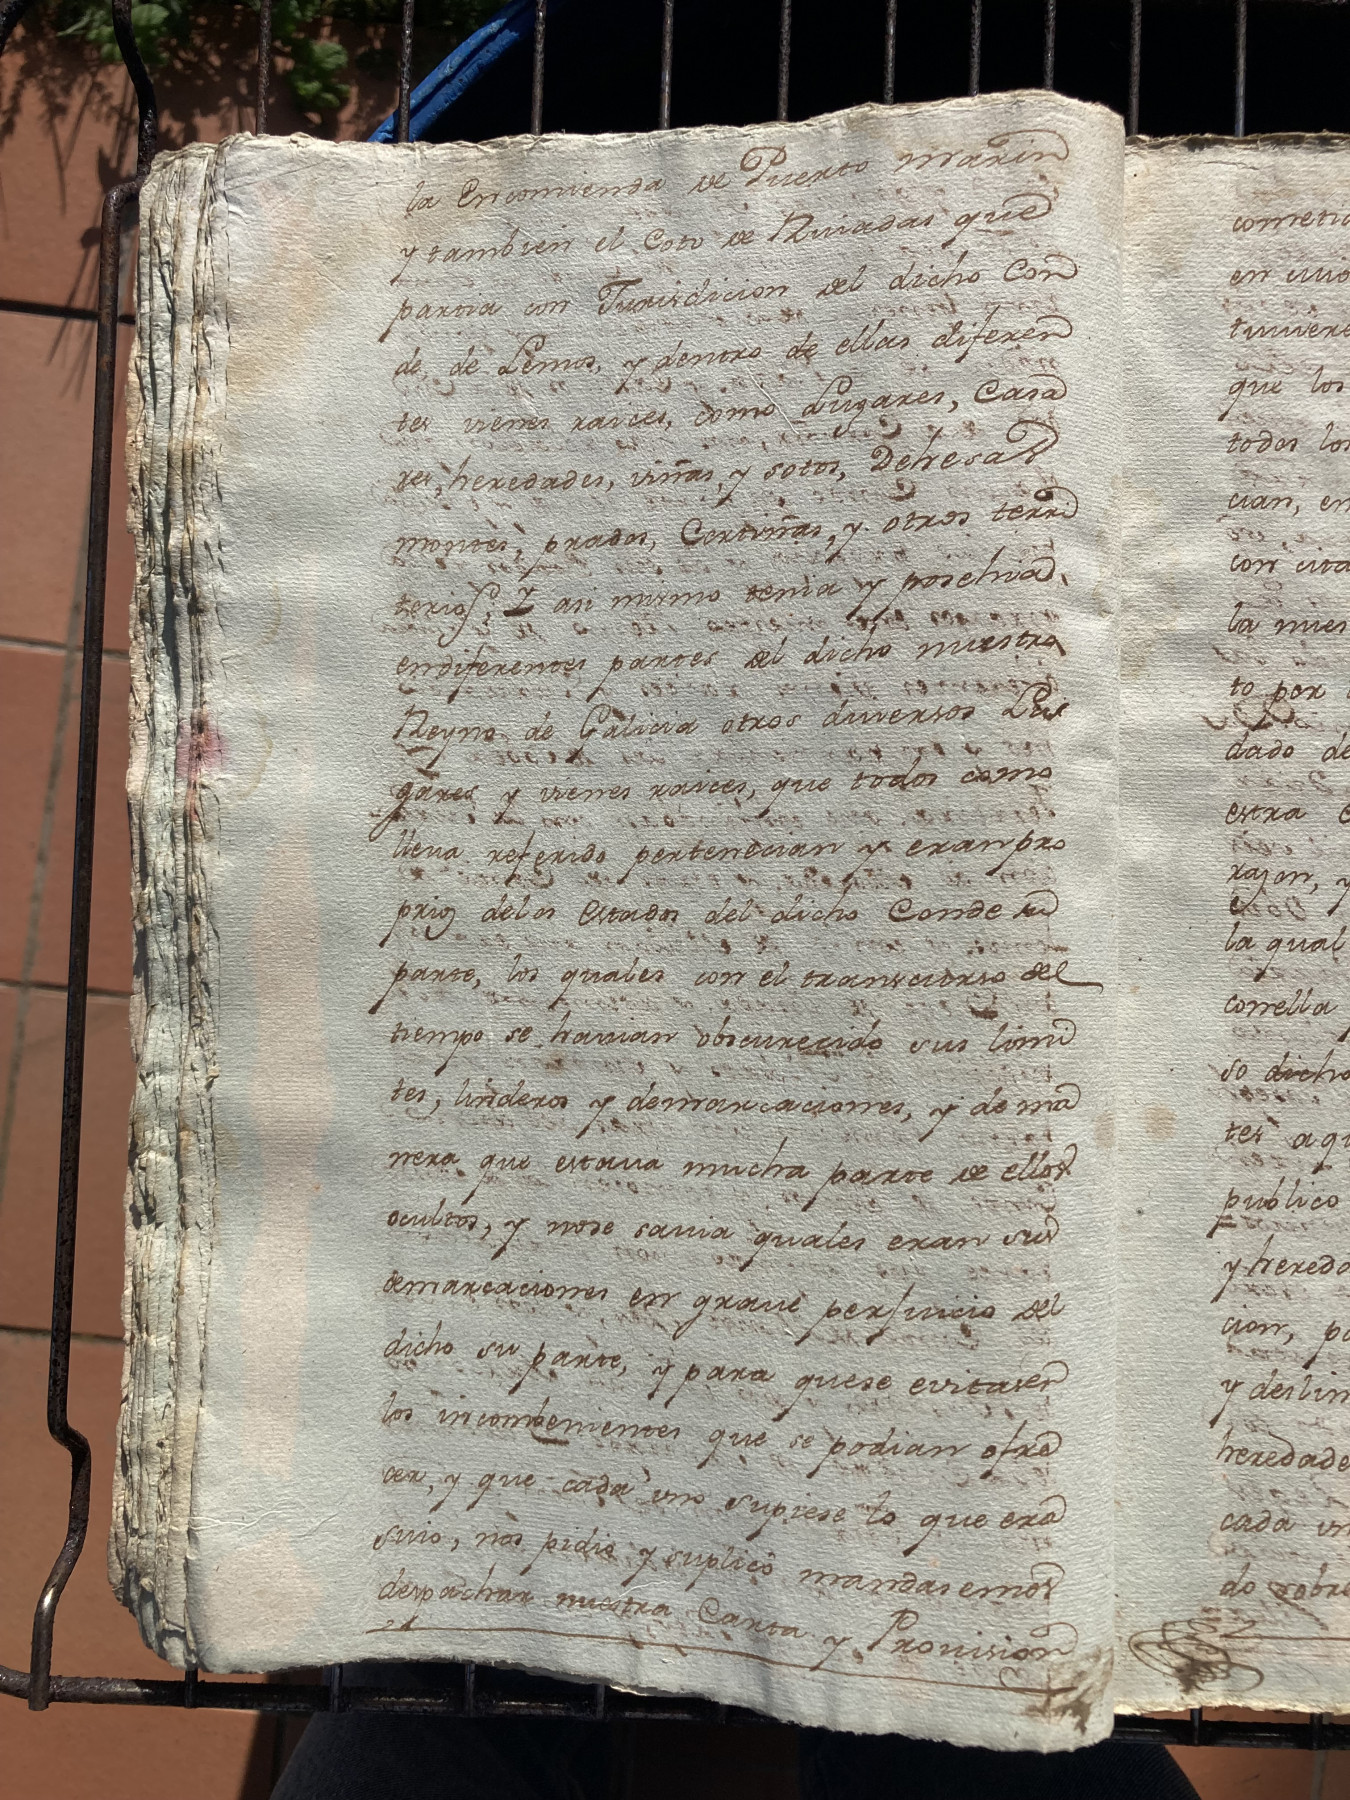 la encomienda de Puerto Marin
y tambien el Coto de Ruiadas que
partia con Jurisdicion del dicho Con
de, de Lemos, y dentro de ellas diferen
tes vienes raices, como Lugares, Casa
res, heredades, viñas, y sotos, Dehesas
montes, prados, Cortiñas, y otros terri
terios. Y asi mismo tenia y posehia,
endiferentes partes del dicho nuestro
Reyno de Galicia otros diversos Lu
gares y vienes raices, que todos como
lleva referido pertenecian y eran pro
prios delos estados del dicho Conde su
parte, los quales con el transcurso del
tiempo se havian obscurecido sus limi
tes, linderos y demarcaciones, y de ma
nera que estava mucha parte de ellos
ocultos, y nose savia quales eran sus
demarcaciones en grave perjuicio del
dicho su parte, y para quese evitasen
los incombenientes que se podian ofre
cer, y que cada uno supiese lo que era
suio, nos pidio y suplico mandasemos
despachar nuestra Carta y Provision
cometi
en cuio
tuviere
que los
todos los
cian, en
con cita
la mies
to por
dado de
estra
razon, y
la qual
conella
so dicho
tes aqu
publico
y hereda
cion, pa
y deslin
heredade
cada un
do sobre